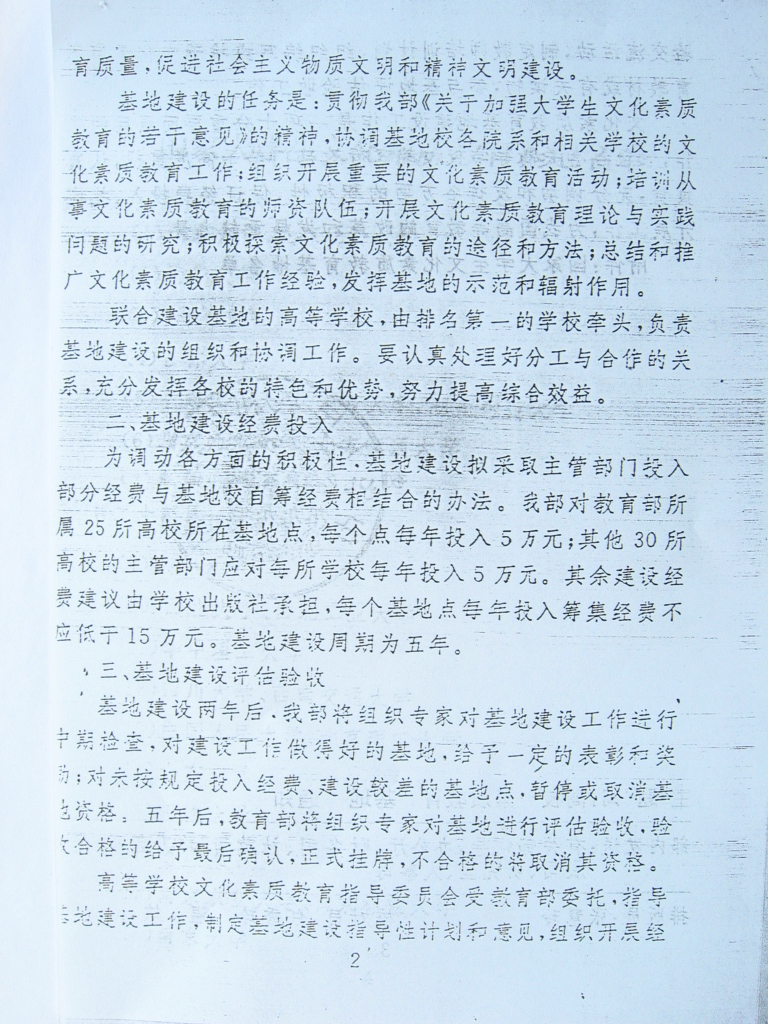 育质量,促进社会主义物质文明和精神文明建设。
基地建设的任务是:贯彻我部《关于加强大学生文化素质
教育的若干意见》的精神,协调基地校各院系和相关学校的文
化素质教育工作;组织开展重要的文化素质教育活动;培训从
事文化素质教育的师资队伍;开展文化素质教育理论与实践
问题的研究;积极探索文化素质教育的途径和方法;总结和推
广文化素质教育工作经验,发挥基地的示范和辐射作用。
联合建设基地的高等学校,由排名第一的学校牵头,负责
基地建设的组织和协调工作。要认真处理好分工与合作的关
系,充分发挥各校的特色和优势,努力提高综合效益。
二、基地建设经费投入
为调动各方面的积极性,基地建设拟采取主管部门投入
部分经费与基地校自筹经费相结合的办法。我部对教育部所
属25所高校所在基地点,每个点每年投入5万元;其他30所
高校的主管部门应对每所学校每年投入5万元。其余建设经
费建议由学校出版社承担,每个基地点每年投入筹集经费不
应低于15万元。基地建设周期为五年。
三、基地建设评估验收
基地建设两年后,我部将组织专家对基地建设工作进行
中期检查,对建设工作做得好的基地,给予一定的表彰和奖
励;对未按规定投入经费、建设较差的基地点,暂停或取消基
地资格。五年后,教育部将组织专家对基地进行评估验收,验
收合格的给予最后确认,正式挂牌,不合格的将取消其资格。
高等学校文化素质教育指导委员会受教育部委托,指导
基地建设工作,制定基地建设指导性计划和意见,组织开展经
2